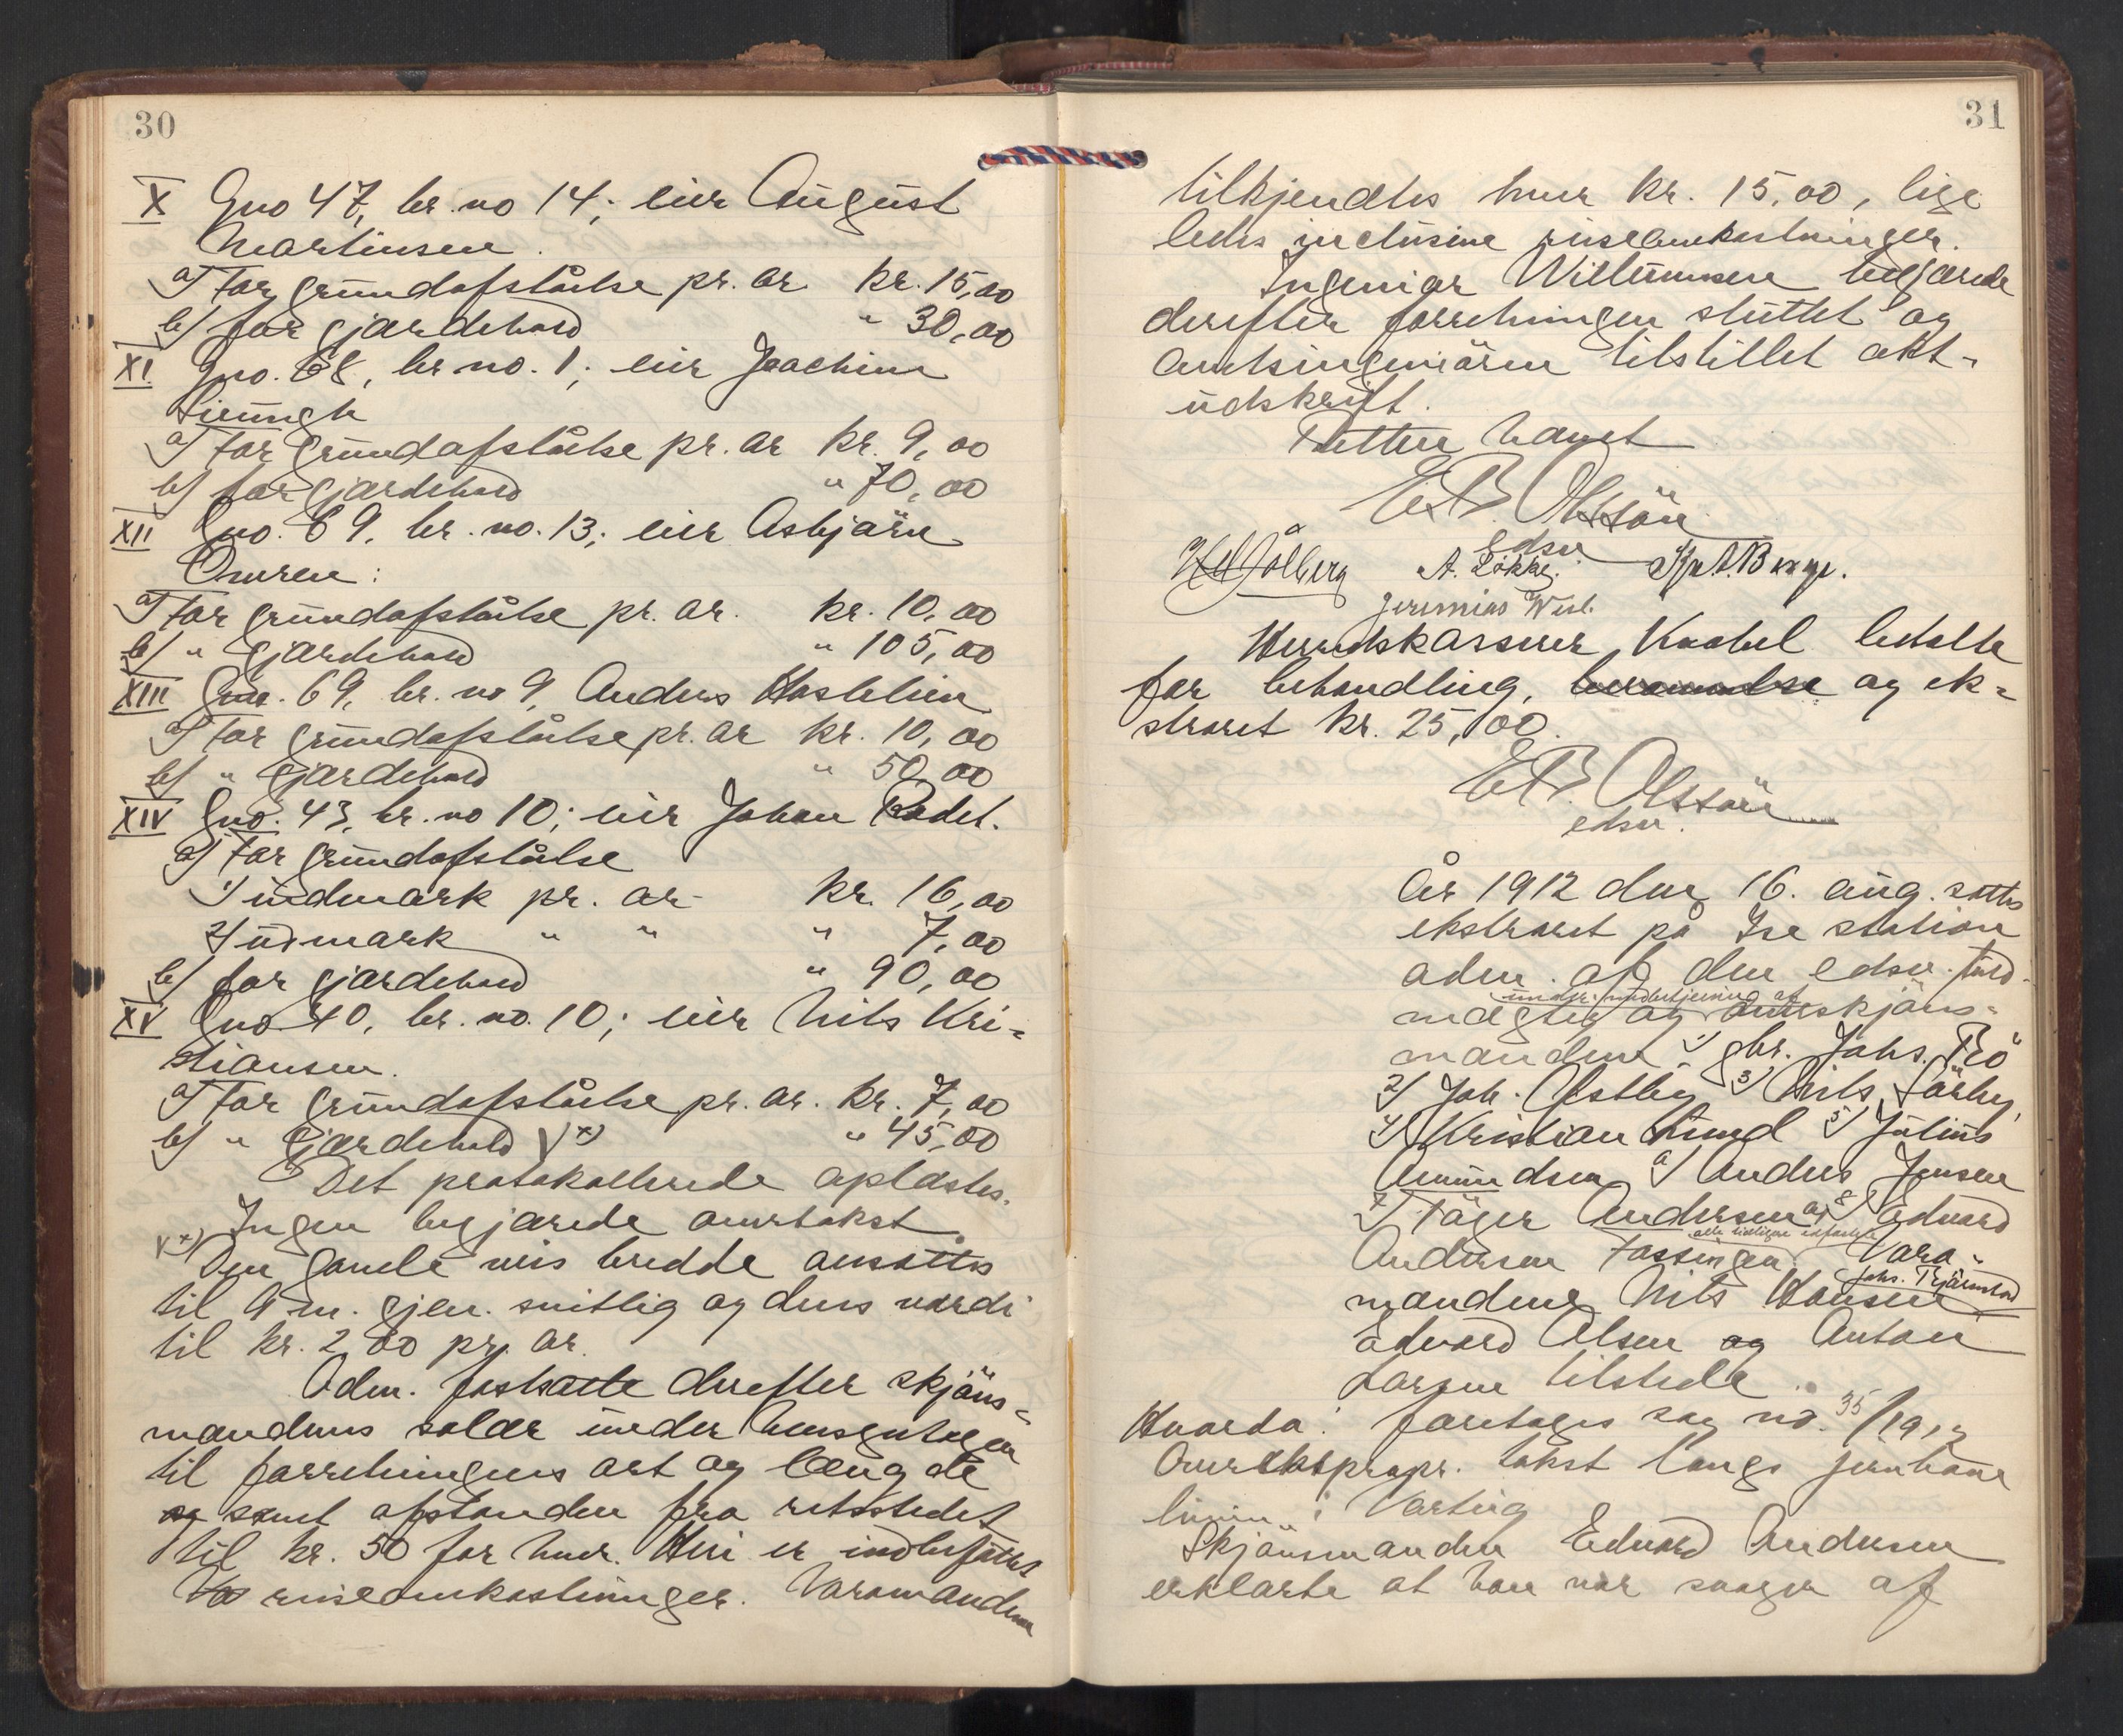 30
X Gno 47, br. no 14; eier August
Martinsen.
a) For grundafståelse pr. ar kr. 15,00
b) for gjærdehold " 30,00
XI. Gno. 68, br. no. 1; eier Joachim
a) For grundafståelse pr. ar kr. 9,00
b) for gjærdehold " 70,00
XII Gno. 69, br. no. 13; eier Asbjørn
Omren:
a) For grundafståelse pr. ar. kr. 10,00
b) " gjærdehold " 105,00
XIII Gno. 69, br. no 9, Anders Haslelien
a) For grundafståelse pr. ar kr. 10,00
b) " gjærdehold " 50,00
XIV Gno. 43, br. no 10; eier Johan Rødet.
a) For grundafståelse
1) indmark pr. ar - kr. 16,00
2) udmark " " " 7,00
b) for gjærdehold " 90,00
XV Gno 40, br. no. 10; eier Nils Kri-
stiansen.
a) For grundafståelse pr. ar. kr. 7,00
b) " gjærdehold √x) " 45,00
Det protokollerede oplæstes.
Ingen begjærede overtakst.
√x) Den gamle veis bredde ansattes
til 4 m. gjen. snitlig og dens værdi
til kr. 2,00 pr. ar.
Adm. fastsatte derefter skjøns-
mændenes salær under hensyntagen
til forretningens art og længde
og samt afstanden fra retsstedet
til kr. 50 for hver. Heri er indbefattet
reiseomkostninger. Varamændene
31
tilkjendtes hver kr. 15,00, lige
ledes inclusive reiseomkostninger.
Ingeniør Willumsen begjærede
derefter forretningen sluttet og
amtsingeniøren tilstillet akt-
udskrift.
Retten hævet
E.B. Olssøn
edsv
A. Løkke. A. Berge.
Jeremias
Herredskasserer betalte
for behandling, berammelse og ek-
straret kr. 25,00.
E.B. Olssøn
edsv.
År 1912 den 16. aug. sattes
ekstraret på Ise station
adm. af den edsv. fuld-
under medbetjening af
mægtig og skjøns-
mændene 1) gbr. Johs. Bø
2) Joh. Østby 3) Nils Tørby,
4) Kristian Lund 5) Julius
Amundsen 6) Anders Jensen
7) Andersen og 8) Edvard
alle tidligere edfæstede
Andersen Fossingen. Vara-
Johs.
mændene Nils Hansen
Edvard Olsen og Anton
Larsen tilstede.
Hvorda: foretoges sag no. 35/1912
Overekspropr. takst langs jernbane
linien i Varteig
Skjønsmanden Edvard Andersen
erklærte at han var svoger af